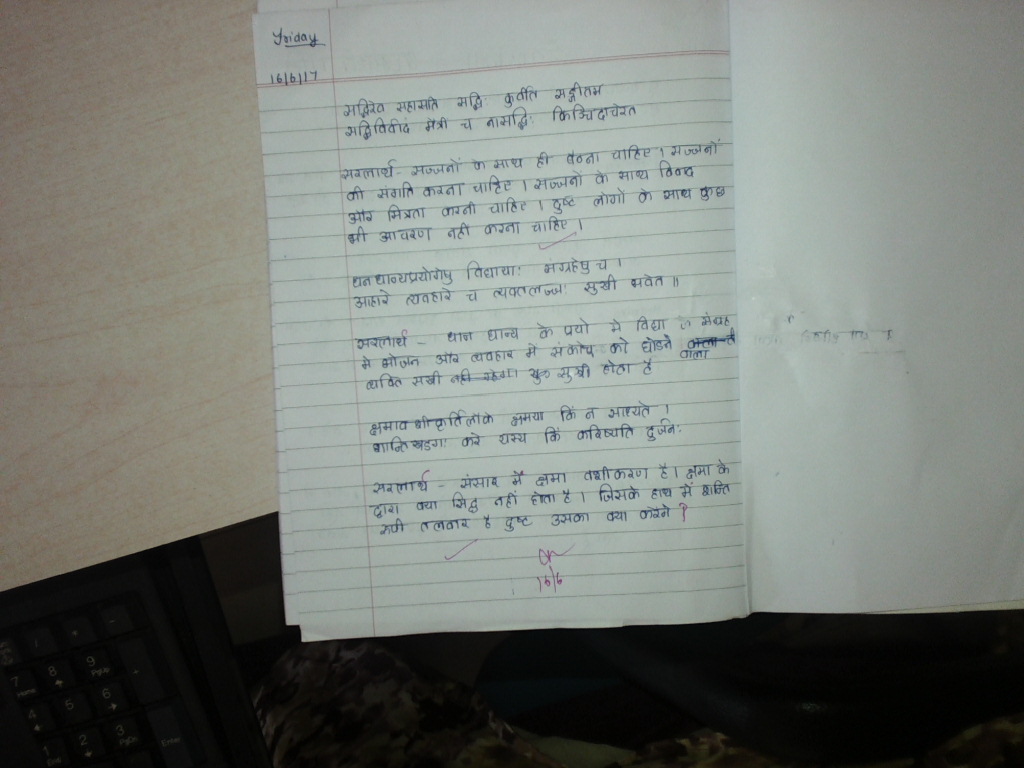 Friday
16/6/17
सद्भिरेव सहासति सद्भिः कुर्वति सङ्गीतम
सद्भिविवादं मैत्री च नासद्भिः किञ्चिदाचेरत
सरलार्थ - सज्जनों के साथ ही बैठना चाहिए। सज्जनों
की संगति करना चाहिए। सज्जनों के साथ विवाद
और मित्रता करनी चाहिए। दुष्ट लोगों के साथ कुछ
भी आचरण नही करना चाहिए।
धनधान्यप्रयोगेषु विद्यायाः संग्रहेषु च।
आहारे व्यवहारे च त्यक्तलज्जः सुखी भवेत॥
सरलार्थ - धान धान्य के प्रयो मे विद्या के संग्रह
मे भोजन और व्यवहार मे संकोच को छोडने वाला
व्यक्ति सखी सुखी होता है
क्षमया किं न साध्यते।
शान्तिखडगः करे यस्य किं करिष्यति दुर्जनः
सरलार्थ - संसार में क्षमा वशीकरण है। क्षमा के
द्वारा क्या सिद्ध नहीं होता है। जिसके हाथ में शान्ति
रूपी तलवार है दुष्ट उसका क्या करेंगे ?
16/6
7 Home
8
9 PgUp
4
5
6
1 End
2
3 PgDn
Enter